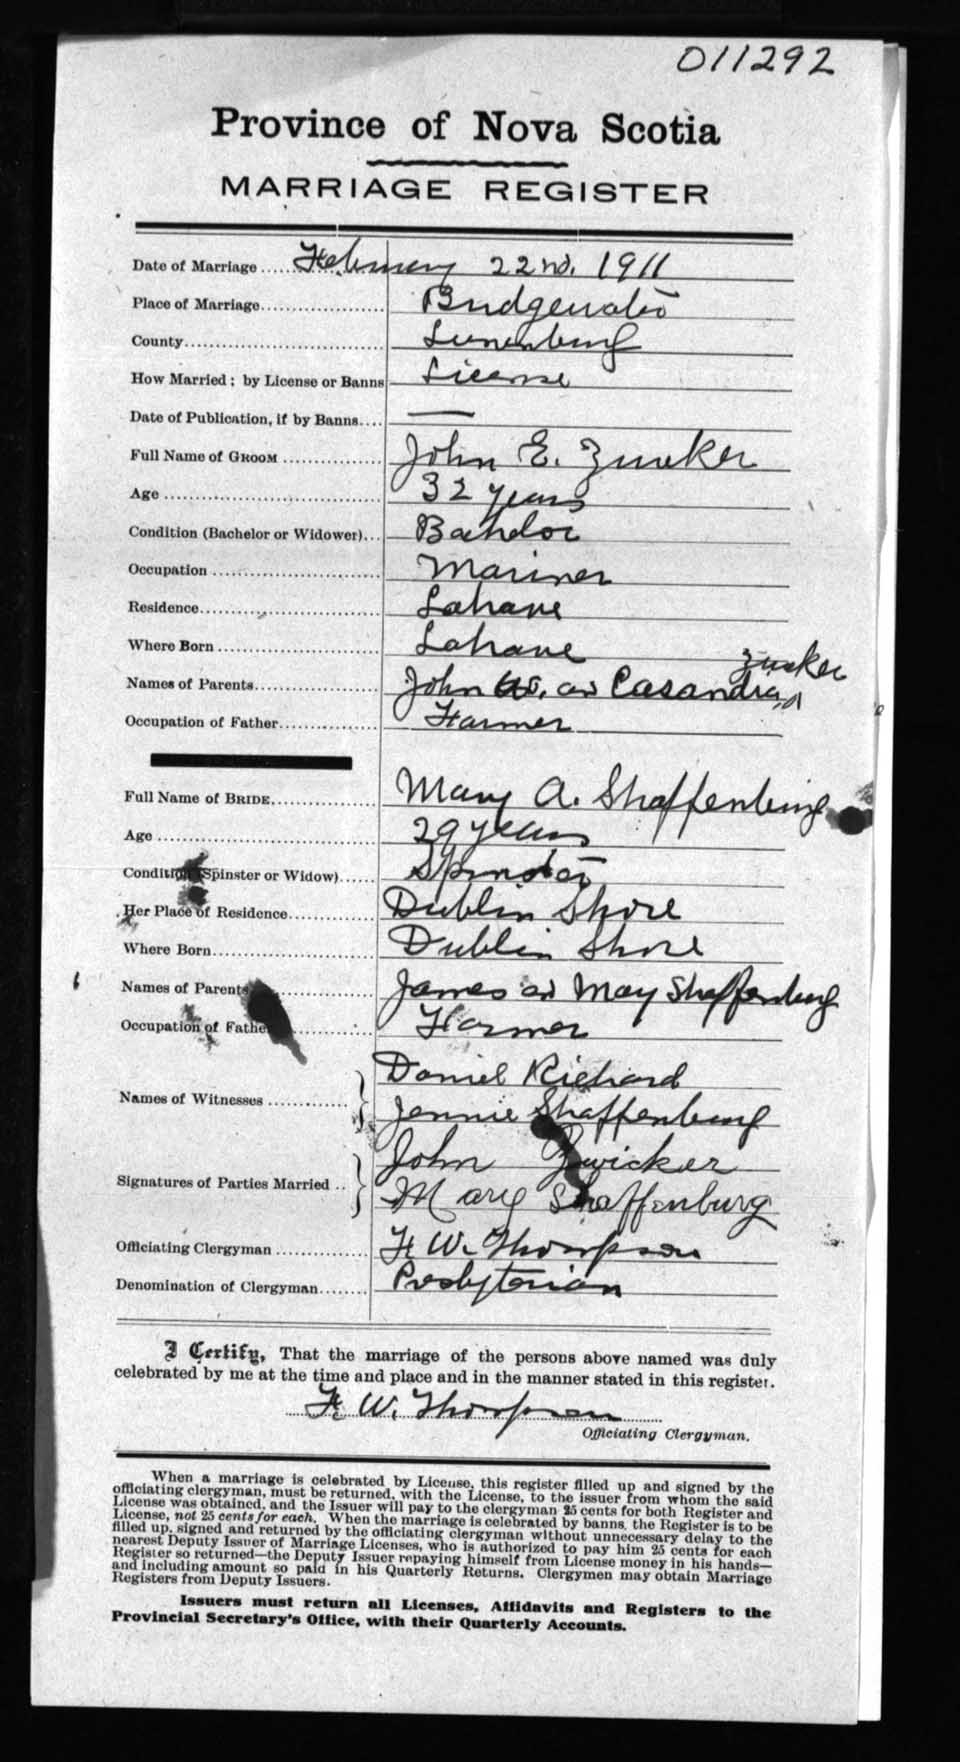 011292
Province of Nova Scotia
MARRIAGE REGISTER
Date of Marriage ..... February 22nd. 1911
Place of Marriage..................... Bridgewater
County................................. Lunenburg
How Married; by License or Banns License
Date of Publication, if by Banns.... —
Full Name of GROOM ................. John E. Zwicker
Age ..................................... 32 years
Condition (Bachelor or Widower)... Bachelor
Occupation ............................ Mariner
Residence............................... Lahave
Where Born ............................ Lahave
Zwicker
Names of Parents...................... John W. and Casandra
Occupation of Father.................. Farmer
Full Name of BRIDE.................. Mary A. Shaffenburg
Age ..................................... 29 years
Condition (Spinster or Widow)...... Spinster
Her Place of Residence.............. Dublin Shore
Where Born............................ Dublin Shore
Names of Parents.................... James and May Shaffenburg
Occupation of Father............... Farmer
Names of Witnesses ............ Daniel Richard
Jennie Shaffenburg
Signatures of Parties Married .. John Zwicker
Mary Shaffenburg
Officiating Clergyman .............. F. W. Thompson
Denomination of Clergyman........ Presbyterian
I Certify, That the marriage of the persons above named was duly
celebrated by me at the time and place and in the manner stated in this register.
F. W. Thompson
Officiating Clergyman.
When a marriage is celebrated by License, this register filled up and signed by the
officiating clergyman, must be returned, with the License, to the issuer from whom the said
License was obtained, and the Issuer will pay to the clergyman 25 cents for both Register and
License, not 25 cents for each. When the marriage is celebrated by banns, the Register is to be
filled up, signed and returned by the officiating clergyman without unnecessary delay to the
nearest Deputy Issuer of Marriage Licenses, who is authorized to pay him 25 cents for each
Register so returned—the Deputy Issuer repaying himself from License money in his hands—
and including amount so paid in his Quarterly Returns. Clergymen may obtain Marriage
Registers from Deputy Issuers.
Issuers must return all Licenses, Affidavits and Registers to the
Provincial Secretary's Office, with their Quarterly Accounts.